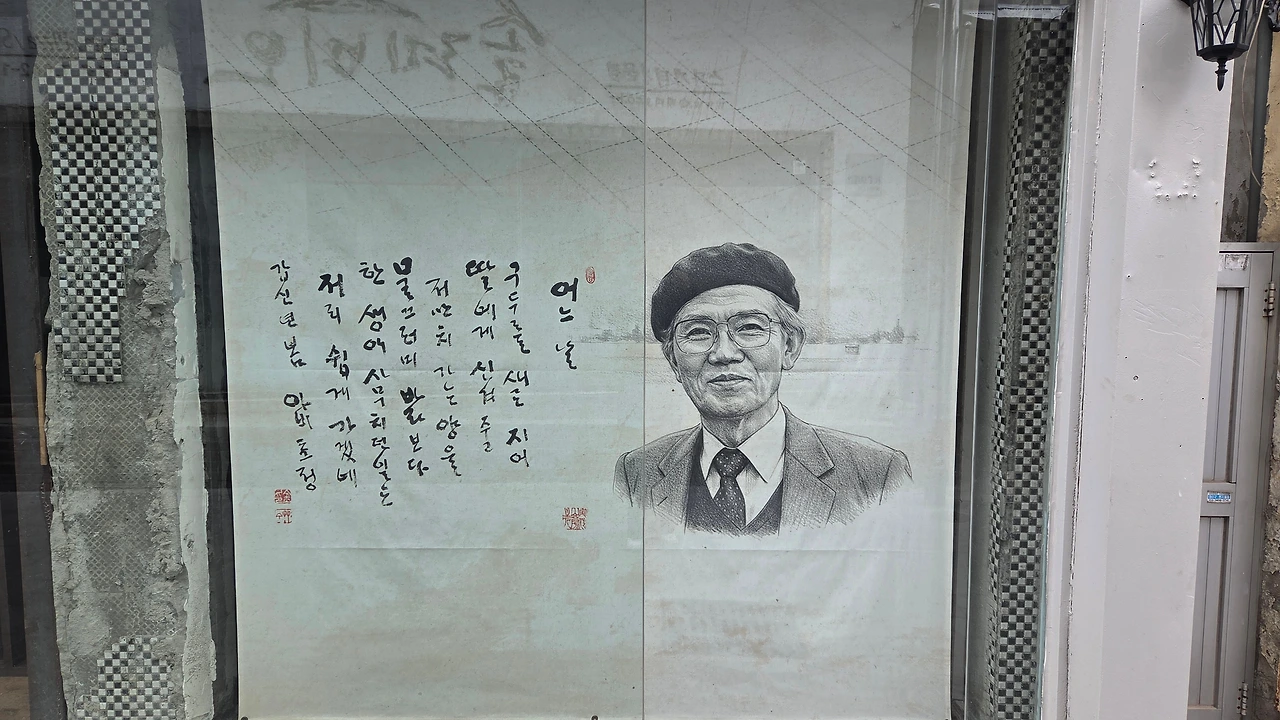 어느 날
구두를 새로 지어
딸에게 신겨 주고
저만치 가는 양을
물끄러미 바라보다
한 생애 사무치던 일도
저리 쉽게 가겠네
갑신년 봄 아비 초정